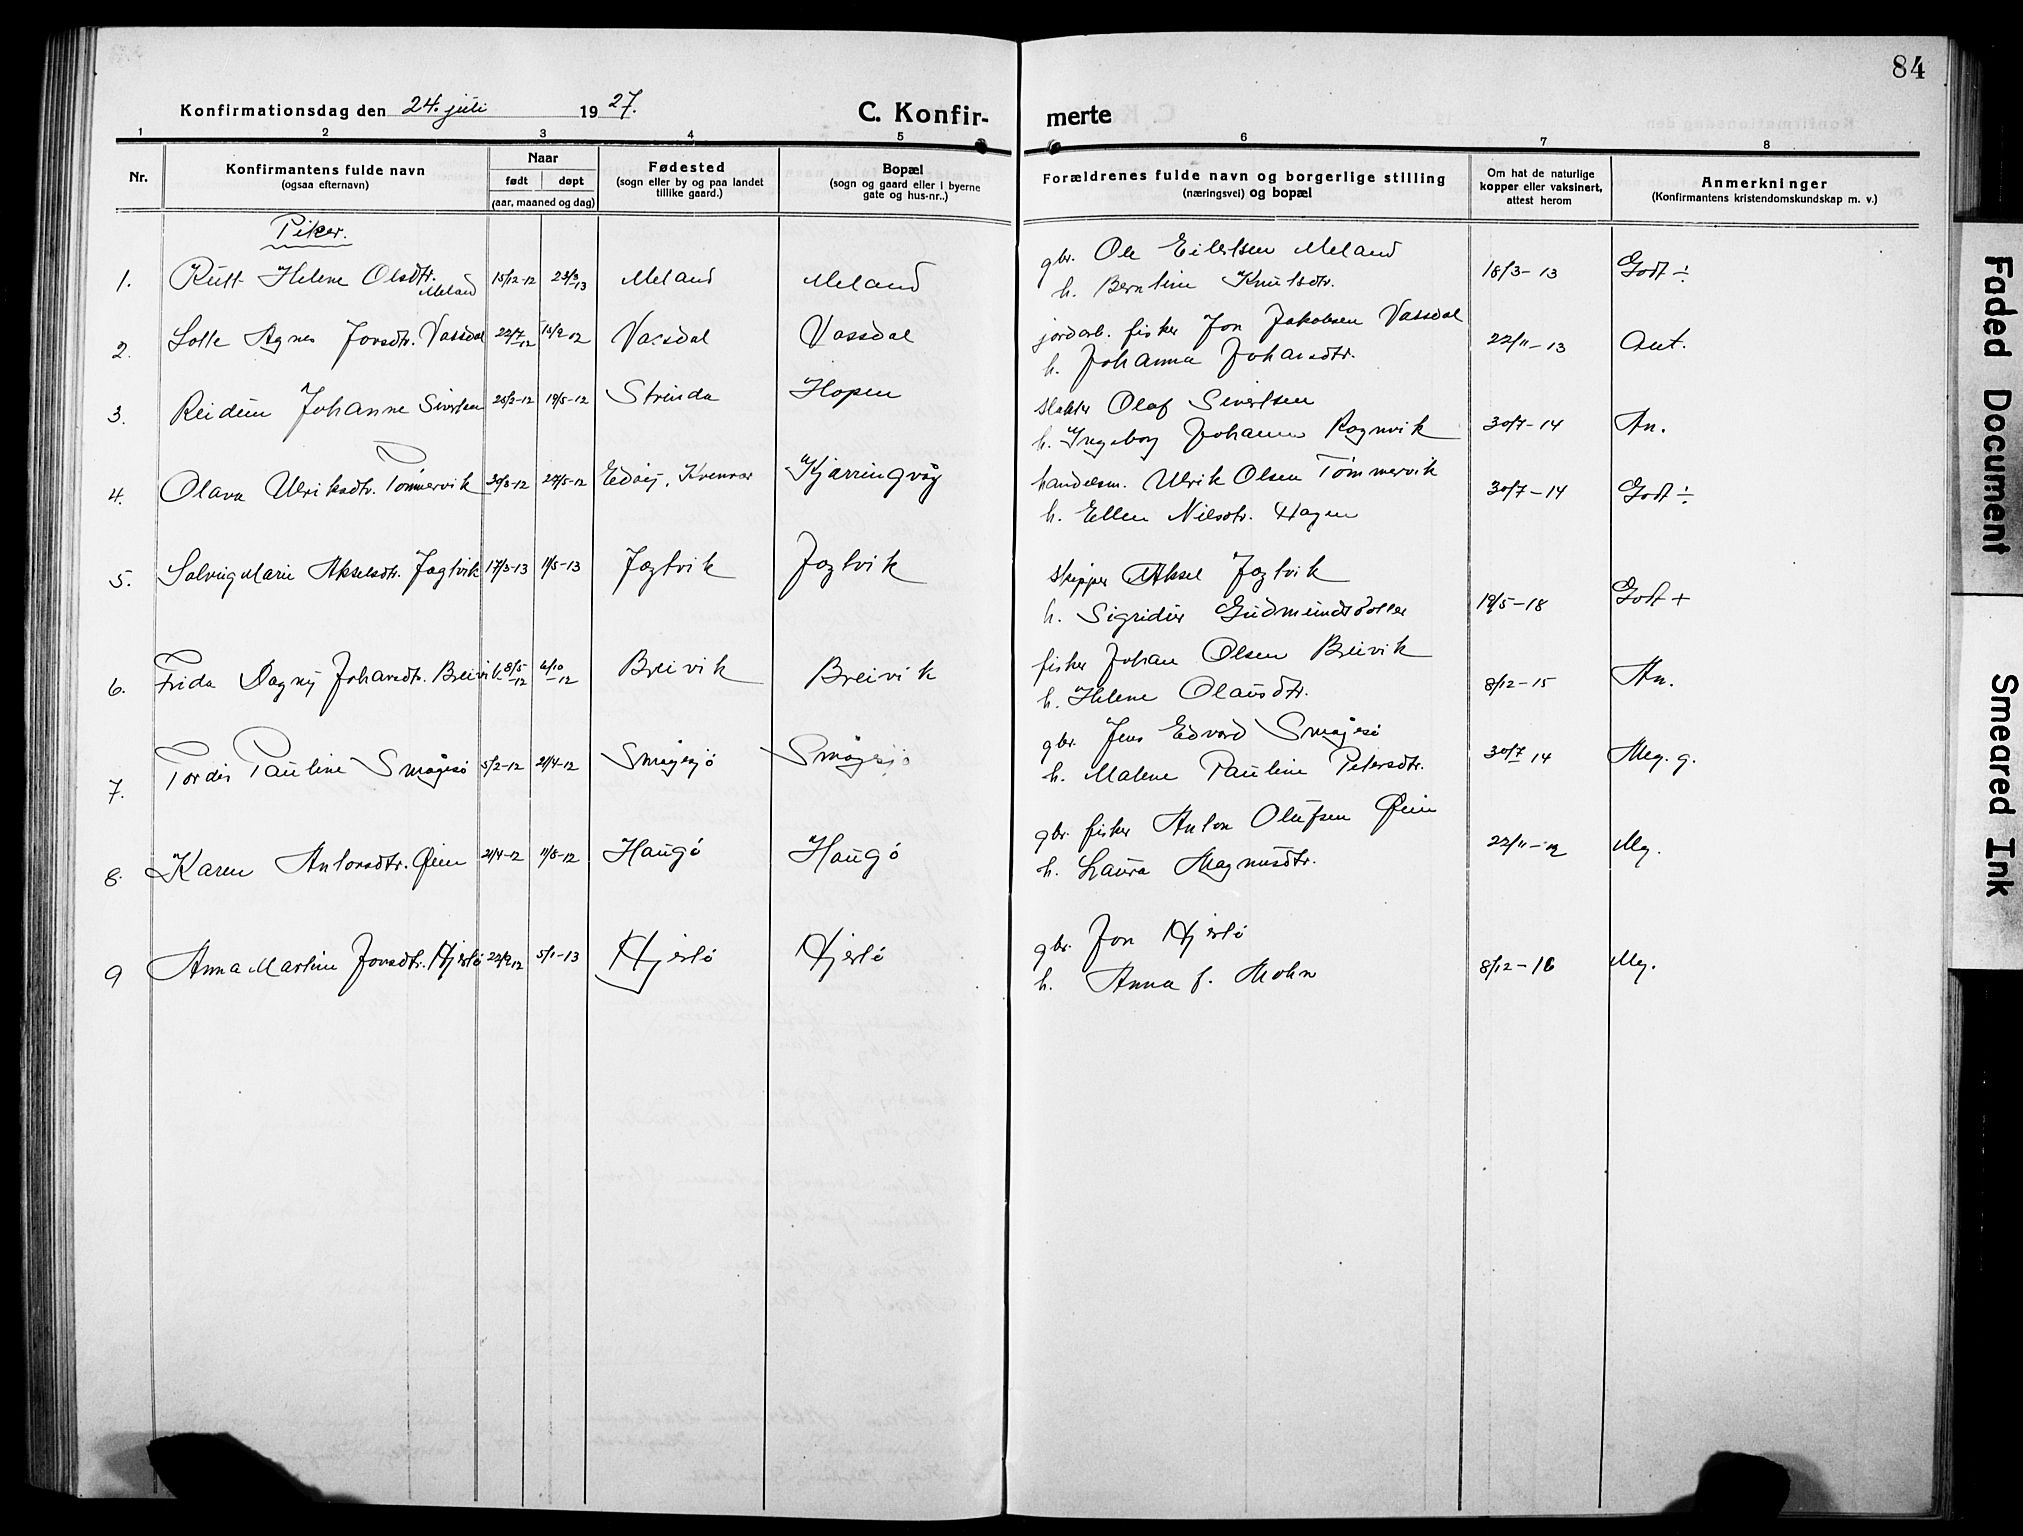 84
Konfirmationsdag den 24. juli 1927.
C. Konfirmerte
1 2 3 4 5 6 7 8
Nr.
Konfirmantens fulde navn
(ogsaa efternavn)
Naar
født døpt
(aar, maaned og dag)
Fødested
(sogn eller by og paa landet
tillike gaard.)
Bopæl
(sogn og gaard eller i byerne
gate og hus-nr..)
Forældrenes fulde navn og borgerlige stilling
(næringsvei) og bopæl
Om hat de naturlige
kopper eller vaksinert,
attest herom
Anmerkninger
(Konfirmantens kristendomskundskap m. v.)
Piker.
1. Rutt Helene Olsdtr. Meland 15/12-12 23/3 13 Meland Meland gbr. Ole Eilertsen Meland 18/3-13 Godt ÷
h. Berntine Knutsdtr.
2. Lotte Agnes Jonsdtr. Vassdal 22/7 12 15/9 12 Vassdal Vassdal jordarb. fisker Jon Jakobsen Vassdal 22/11-13 Ant.
h. Johanna Johansdtr.
3. Reidun Johanne Sivertsen 19/5-12 Strinda Hopen Olaf Sivertsen 30/7-14 An.
h. Ingeborg Johanne Rognvik
4. Olava Ulriksdtr. Tømmervik 30/3-12 27/5-12 Edøy, Kvenvær Kjørringvåg handelsm. Ulrik Olsen Tømmervik 30/7-14 Godt ÷
h. Ellen Nilsdtr. Hagen
5. Solveig Marie Akselsdtr. Jøgtvik 17/3-13 11/5-13 Jøgtvik Jøgtvik skipper Aksel Jøgtvik 19/5-18 Godt +
h. Sigridur Gudmundsdotter
6. Frida Dagny Johansdtr. Breivik 8/5 12 6/10 12 Breivik Breivik fisker Johan Olsen Breivik 8/12-15 An.
h. Helene Olausdtr.
7. Tordis Pauline Smågesø 5/2-12 21/4-12 Smågesjø Smågesjø gbr. Jens Edvard Smågesø 30/7 14 Meg. g.
h. Malene Pauline Petersdtr.
8. Karen Antonsdtr. Øien 21/4-12 11/8-12 Haugø Haugø gbr. fisker Anton Olufsen Øien 22/11-12 Mg.
h. Laura Magnusdtr.
9 Anna Martine Jonsdtr. Hjertø 22/9 12 5/1-13 Hjertø Hjertø gbr. Jon Hjertø 8/12-16 Mg.
h. Anna f. Mohn
Faded Document
Smeared Ink